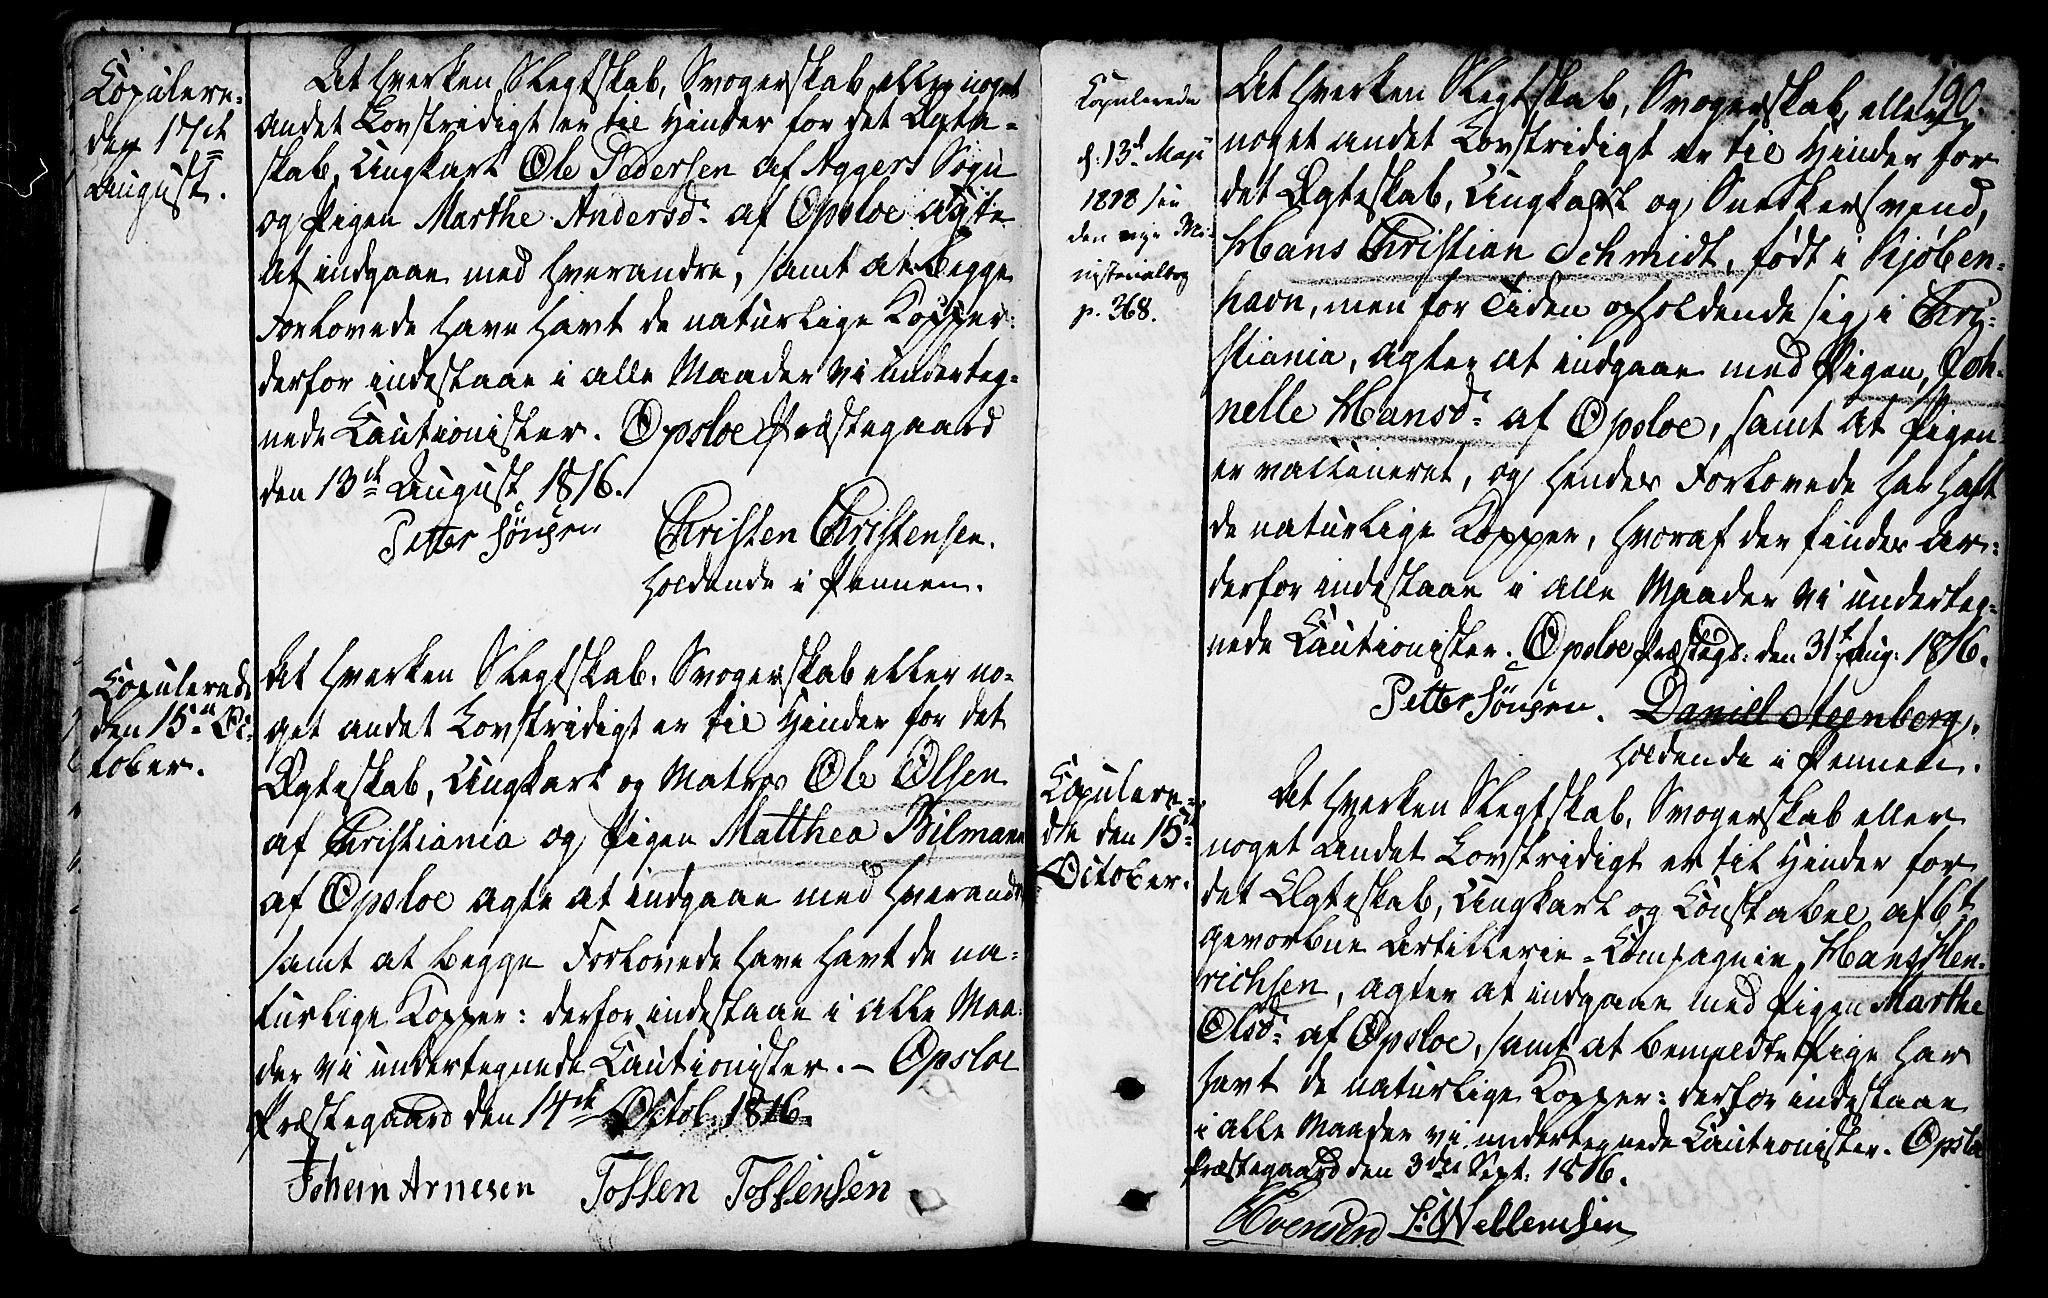 Copulere-
den 17de
August.
At hverken Slegtskab, Svogerskab eller noget
andet Lovstridigt er til Hinder for det Ægte-
skab, Ungkarl Ole Pedersen af Aggers Sogn
og Pigen Marthe Andersd: af Opsloe agte
at indgaae med hverandre, samt at begge
Forlovede have havt de naturlige Kopper:
derfor indestaae i alle Maader vi underteg-
nede Cautionister. Opsloe Præstegaard
den 13de August 1816.
Petter Jönsen Christen Christensen.
holdende i Pennen.
Copulerede
den 15de Oc-
tober.
At hverken Slegtskab, Svogerskab eller no-
get andet Lovstridigt er til Hinder for det
Ægteskab, Ungkarl og Matros Ole Olsen
af Christiania og Pigen Matthea Bilmann
af Opsloe agte at indgaae med hverandre
samt at begge Forlovede have havt de na-
turlige Kopper: derfor indestaae i alle Maa-
der vi undertegnede Cautionister. – Opsloe
Præstegaard den 14de Octob: 1816.
Johein Arnesen Tossen Tossensen
190.
Kopulerede
d: 13de Maji
1818 see
den nye Mi-
nisterialbog
p. 368.
At hverken Slegtskab, Svogerskab, eller
noget andet Lovstridigt er til Hinder for
det Ægteskab, Ungkarl og Snedkersvend,
Hans Christian Schmidt, født i Kjøben-
havn, men for Tiden opholdende sig i Chri-
stiania, agter at indgaae med Pigen, Joh-
nelle Hansd: af Opsloe, samt at Pigen
er vaccineret, og hendes Forlovede har haft
de naturlige Kopper, hvoraf der findes Ar:
derfor indestaae i alle Maader vi underteg-
nede Cautionister. Opsloe Præstegd: den 31te Aug: 1816.
Petter Jönsen. Daniel Steenberg,
holdende i Pennen.
Copulere-
de den 15de
October.
At hverken Slegtskab, Svogerskab eller
noget Andet Lovstridigt er til Hinder for
det Ægteskab, Ungkarl og Constabel af 6te
gevorbne Artillerie-Compagnie, Hans Hen-
richsen, agter at indgaae med Pigen Marthe
Olsd: af Opsloe, samt at bemeldte Pige har
havt de naturlige Kopper: derfor indestaae
i alle Maader vi undertegnede Cautionister. Opsloe
Præstegaard den 3die Sept: 1816.
L: Wellemsen